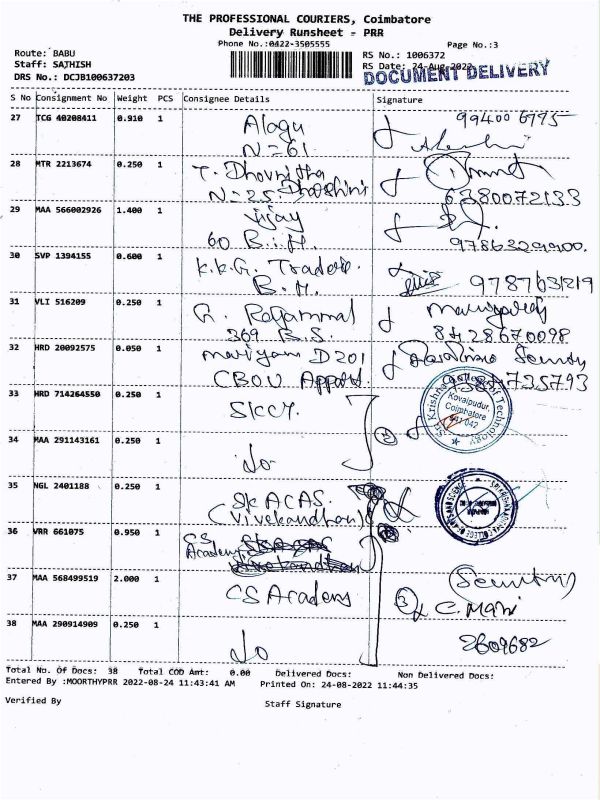 THE PROFESSIONAL COURIERS, Coimbatore
Delivery Runsheet - PRR
Phone No.:0422-3505555
Page No.:3
Route: BABU
RS No.: 1006372
Staff: SAJHISH
RS Date: 24-Aug-2022
DRS No.: DCJB100637203
DOCUMENT DELIVERY
S No Consignment No Weight PCS Consignee Details Signature
27 TCG 40208411 0.910 1 Alagu 99400 6775
N = 61
28 MTR 2213674 0.250 1 T. Dhovnitha
N = 25. Dharshini 6380072133
29 MAA 566002926 1.400 1 Vijay
60 B.i.H. 9786329900.
30 SVP 1394155 0.600 1 K.K.G. Traders.
B.M. 9787631219
31 VLI 516209 0.250 1 G. Rajammal
369 B.S. 8428670098
32 HRD 20092575 0.050 1 Mariyam D201 Security
CBOU Appart.
33 HRD 714264550 0.250 1 SKCT.
Sri Krishna College of Technology
Kovaipudur,
Coimbatore
641 042
34 MAA 291143161 0.250 1 do
35 NGL 2401188 0.250 1 SKACAS.
(Vivekandhan)
36 VRR 661075 0.950 1 CS
Academy
37 MAA 568499519 2.000 1 CS Academy (Security)
C. Mani
38 MAA 290914909 0.250 1 do 2609682
Total No. Of Docs: 38 Total COD Amt: 0.00 Delivered Docs: Non Delivered Docs:
Entered By :MOORTHYPRR 2022-08-24 11:43:41 AM Printed On: 24-08-2022 11:44:35
Verified By Staff Signature